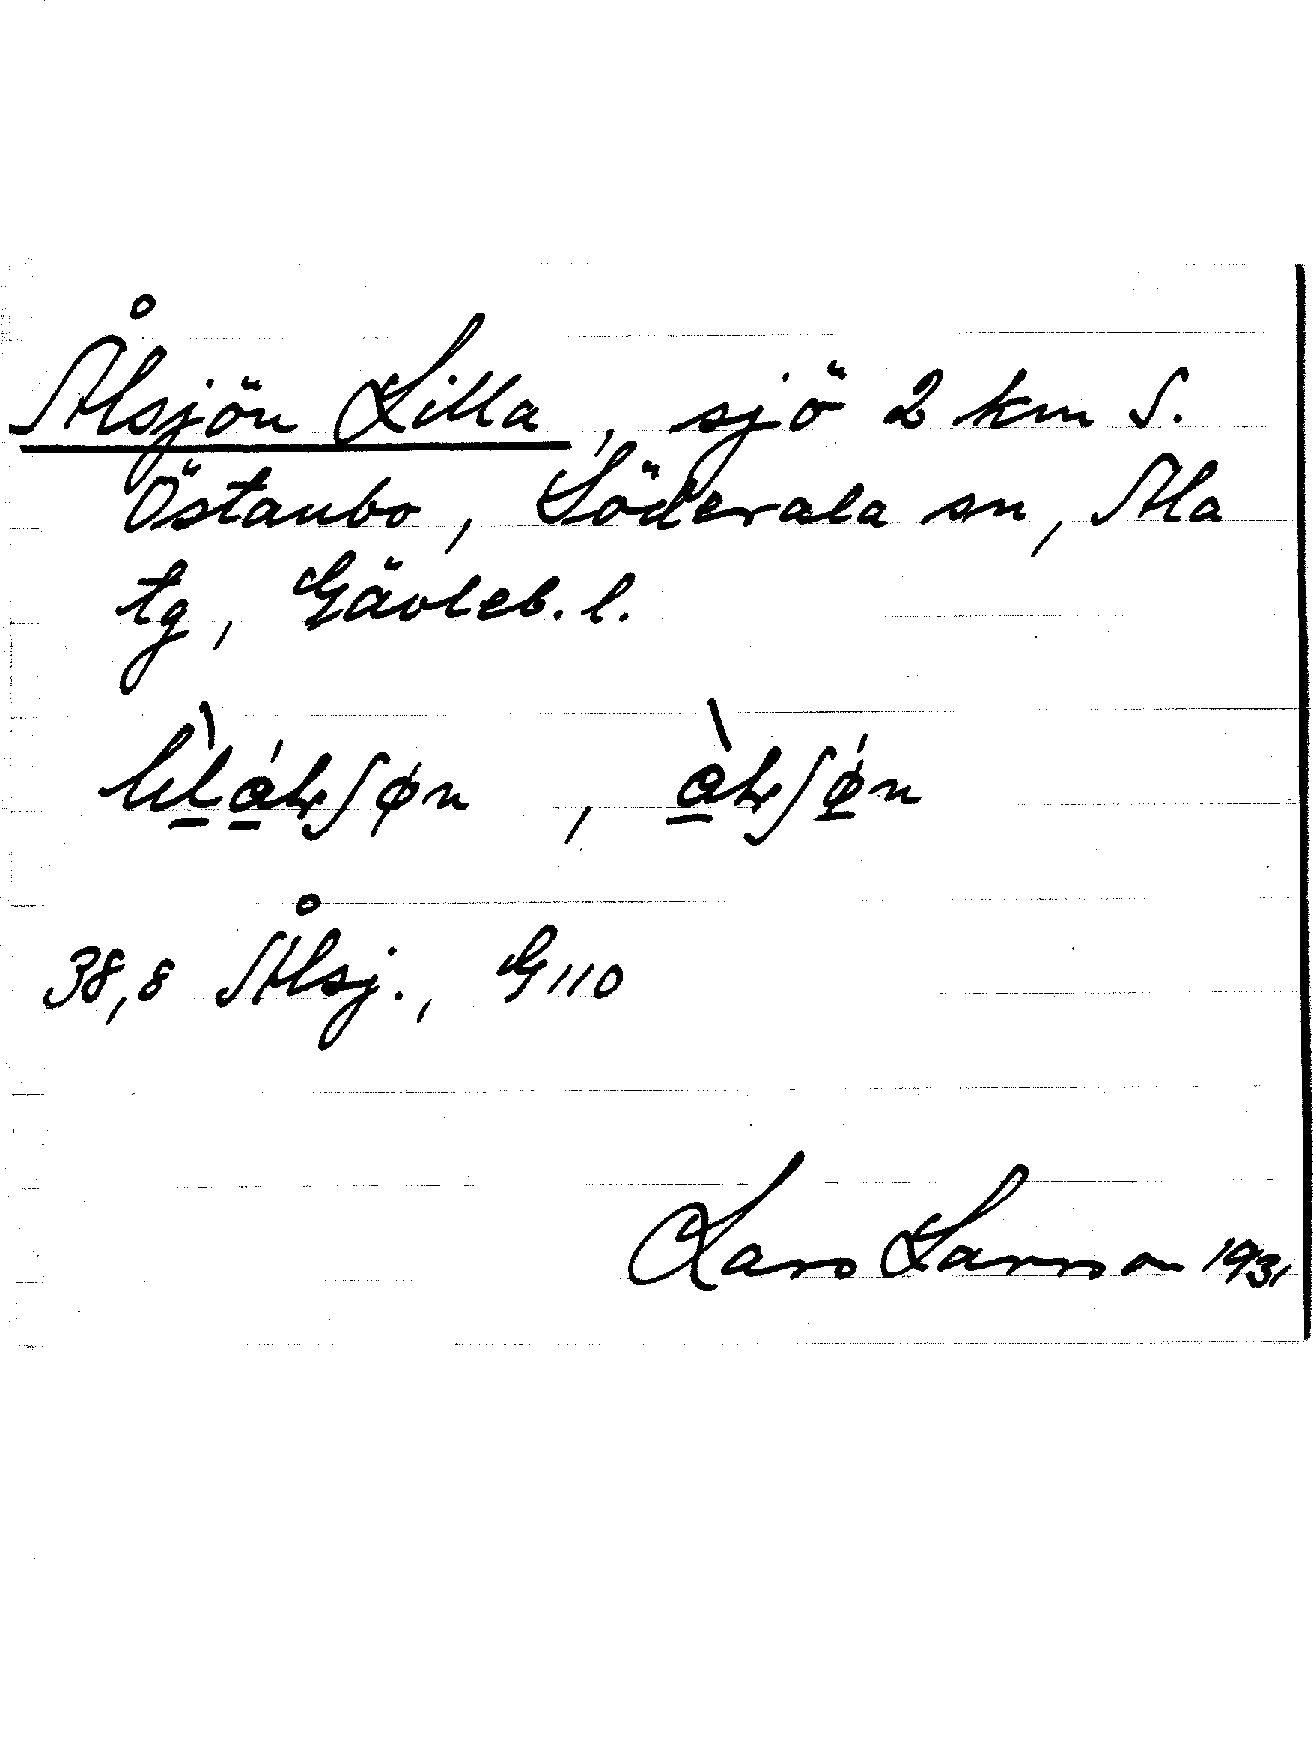 Ålsjön Lilla, sjö 2 km S.
Östanbo, Söderala sn, Ala
tg, Gävleb. l.
38,8 Ålsj., G110
Lars Larsson 1931